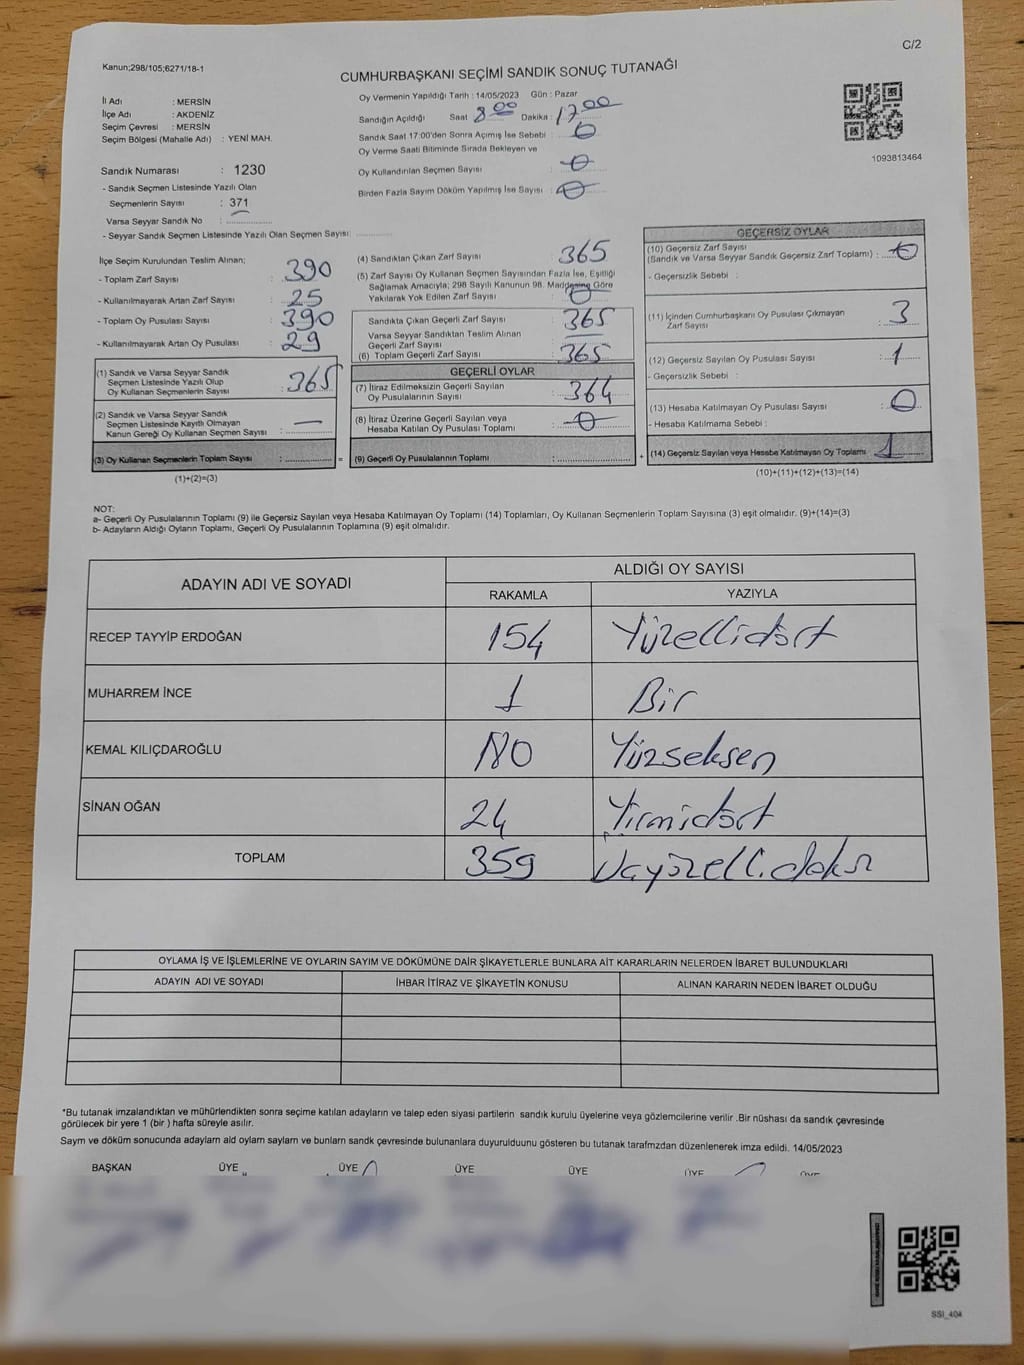 C/2
Kanun;298/105;6271/18-1
CUMHURBAŞKANI SEÇİMİ SANDIK SONUÇ TUTANAĞI
İl Adı : MERSİN
İlçe Adı : AKDENİZ
Seçim Çevresi : MERSİN
Seçim Bölgesi (Mahalle Adı) : YENİ MAH.
Sandık Numarası : 1230
- Sandık Seçmen Listesinde Yazılı Olan
Seçmenlerin Sayısı : 371
Varsa Seyyar Sandık No :
- Seyyar Sandık Seçmen Listesinde Yazılı Olan Seçmen Sayısı:
Oy Vermenin Yapıldığı Tarih : 14/05/2023 Gün : Pazar
Sandığın Açıldığı Saat 8 00 Dakika : 17 00
Sandık Saat 17:00'den Sonra Açımış İse Sebebi : 0
Oy Verme Saati Bitiminde Sırada Bekleyen ve
Oy Kullandırılan Seçmen Sayısı : 0
Birden Fazla Sayım Döküm Yapılmış İse Sayısı : 0
1093813464
İlçe Seçim Kurulundan Teslim Alınan;
- Toplam Zarf Sayısı : 390
- Kullanılmayarak Artan Zarf Sayısı : 25
- Toplam Oy Pusulası Sayısı : 390
- Kullanılmayarak Artan Oy Pusulası : 29
(1) Sandık ve Varsa Seyyar Sandık
Seçmen Listesinde Yazılı Olup
Oy Kullanan Seçmenlerin Sayısı : 365
(2) Sandık ve Varsa Seyyar Sandık
Seçmen Listesinde Kayıtlı Olmayan
Kanun Gereği Oy Kullanan Seçmen Sayısı : —
(3) Oy Kullanan Seçmenlerin Toplam Sayısı :
(1)+(2)=(3)
(4) Sandıktan Çıkan Zarf Sayısı 365
(5) Zarf Sayısı Oy Kullanan Seçmen Sayısından Fazla İse, Eşitliği
Sağlamak Amacıyla; 298 Sayılı Kanunun 98. Maddesine Göre
Yakılarak Yok Edilen Zarf Sayısı : 0
Sandıkta Çıkan Geçerli Zarf Sayısı : 365
Varsa Seyyar Sandıktan Teslim Alınan
Geçerli Zarf Sayısı :
(6) Toplam Geçerli Zarf Sayısı : 365
GEÇERLİ OYLAR
(7) İtiraz Edilmeksizin Geçerli Sayılan
Oy Pusulalarının Sayısı : 364
(8) İtiraz Üzerine Geçerli Sayılan veya
Hesaba Katılan Oy Pusulası Toplamı : 0
= (9) Geçerli Oy Pusulalarının Toplamı :
GEÇERSİZ OYLAR
(10) Geçersiz Zarf Sayısı
(Sandık ve Varsa Seyyar Sandık Geçersiz Zarf Toplamı) : 0
- Geçersizlik Sebebi :
(11) İçinden Cumhurbaşkanı Oy Pusulası Çıkmayan
Zarf Sayısı : 3
(12) Geçersiz Sayılan Oy Pusulası Sayısı : 1
- Geçersizlik Sebebi :
(13) Hesaba Katılmayan Oy Pusulası Sayısı : 0
- Hesaba Katılmama Sebebi :
+ (14) Geçersiz Sayılan veya Hesaba Katılmayan Oy Toplamı : 1
(10)+(11)+(12)+(13)=(14)
NOT:
a- Geçerli Oy Pusulalarının Toplamı (9) ile Geçersiz Sayılan veya Hesaba Katılmayan Oy Toplamı (14) Toplamları, Oy Kullanan Seçmenlerin Toplam Sayısına (3) eşit olmalıdır. (9)+(14)=(3)
b- Adayların Aldığı Oyların Toplamı, Geçerli Oy Pusulalarının Toplamına (9) eşit olmalıdır.
ADAYIN ADI VE SOYADI ALDIĞI OY SAYISI
RAKAMLA YAZIYLA
RECEP TAYYİP ERDOĞAN 154 Yüzellidört
MUHARREM İNCE 1 Bir
KEMAL KILIÇDAROĞLU 180 Yüzseksen
SİNAN OĞAN 24 Yirmidört
TOPLAM 359 Üçyüzellidokuz
OYLAMA İŞ VE İŞLEMLERİNE VE OYLARIN SAYIM VE DÖKÜMÜNE DAİR ŞİKAYETLERLE BUNLARA AİT KARARLARIN NELERDEN İBARET BULUNDUKLARI
ADAYIN ADI VE SOYADI İHBAR İTİRAZ VE ŞİKAYETİN KONUSU ALINAN KARARIN NEDEN İBARET OLDUĞU
*Bu tutanak imzalandıktan ve mühürlendikten sonra seçime katılan adayların ve talep eden siyasi partilerin sandık kurulu üyelerine veya gözlemcilerine verilir .Bir nüshası da sandık çevresinde
görülecek bir yere 1 (bir ) hafta süreyle asılır.
Sayım ve döküm sonucunda adayların ald oyların sayların ve bunların sandk çevresinde bulunanlara duyurulduunu gösteren bu tutanak tarafmzdan düzenlenerek imza edildi. 14/05/2023
BAŞKAN ÜYE ÜYE ÜYE ÜYE ÜYE ÜYE
SSI_404